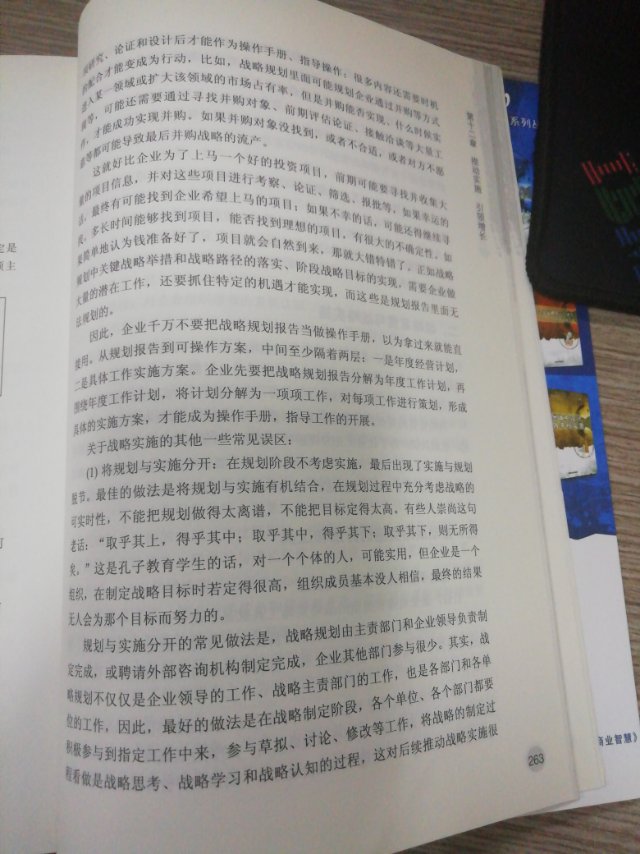 研究、论证和设计后才能作为操作手册、指导操作；很多内容还需要时机
的配合才能变成为行动，比如，战略规划里面可能规划企业通过并购等方式
进入某一领域或扩大该领域的市场占有率，但是并购能否实现、什么时候实
可能还需要通过寻找并购对象、前期评估论证、接触洽谈等大量工
作，才能成功实现并购。如果并购对象没找到，或者不合适，或者对方不愿
等都可能导致最后并购战略的流产。
这就好比企业为了上马一个好的投资项目，前期可能要寻找并收集大
量的项目信息，并对这些项目进行考察、论证、筛选、报批等，如果幸运的
话，最终有可能找到企业希望上马的项目；如果不幸的话，可能还得继续寻
找，多长时间能够找到项目，能否找到理想的项目，有很大的不确定性。如
果简单地认为钱准备好了，项目就会自然到来，那就大错特错了。正如战略
规划中关键战略举措和战略路径的落实、阶段战略目标的实现，需要企业做
大量的潜在工作，还要抓住特定的机遇才能实现，而这些是规划报告里面无
法规划的。
因此，企业千万不要把战略规划报告当做操作手册，以为拿过来就能直
接用。从规划报告到可操作方案，中间至少隔着两层：一是年度经营计划，
二是具体工作实施方案。企业先要把战略规划报告分解为年度工作计划，再
围绕年度工作计划，将计划分解为一项项工作，对每项工作进行策划，形成
具体的实施方案，才能成为操作手册，指导工作的开展。
关于战略实施的其他一些常见误区：
(1) 将规划与实施分开：在规划阶段不考虑实施，最后出现了实施与规划
脱节。最佳的做法是将规划与实施有机结合，在规划过程中充分考虑战略的
可实时性，不能把规划做得太离谱，不能把目标定得太高。有些人崇尚这句
老话：“取乎其上，得乎其中；取乎其中，得乎其下；取乎其下，则无所得
矣。”这是孔子教育学生的话，对一个个体的人，可能实用，但企业是一个
组织，在制定战略目标时若定得很高，组织成员基本没人相信，最终的结果
无人会为那个目标而努力的。
规划与实施分开的常见做法是，战略规划由主责部门和企业领导负责制
定完成，或聘请外部咨询机构制定完成，企业其他部门参与很少。其实，战
略规划不仅仅是企业领导的工作、战略主责部门的工作，也是各部门和各单
位的工作，因此，最好的做法是在战略制定阶段，各个单位、各个部门都要
积极参与到指定工作中来，参与草拟、讨论、修改等工作，将战略的制定过
程看做是战略思考、战略学习和战略认知的过程，这对后续推动战略实施很
263
第十二章 推动实施 引领增长
系列丛
商业智慧》